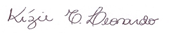 Kízie C. Leonardo